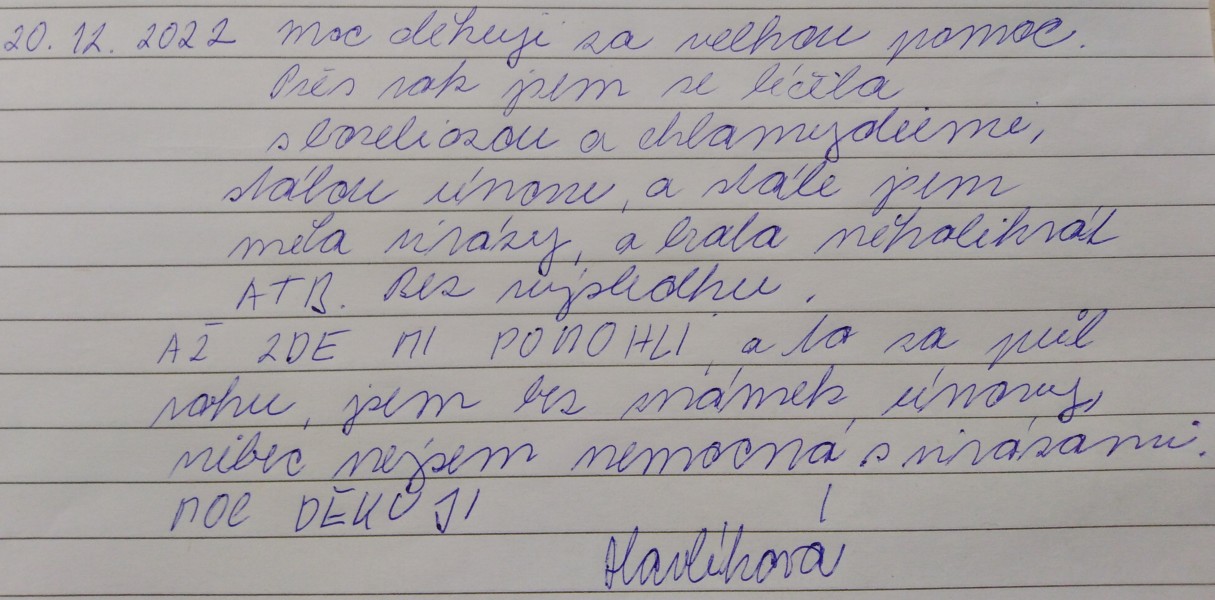 20.12.2022 moc děkuji za velkou pomoc.
Přes rok jsem se léčila
s boreliozou a chlamydiemi,
stálou únavu, a stále jsem
měla virózy, a brala několikrát
ATB. Bez výsledku.
AŽ ZDE MI POMOHLI, a to za půl
roku, jsem bez známek únavy,
vůbec nejsem nemocná s virózami.
MOC DĚKUJI !
Havlíková